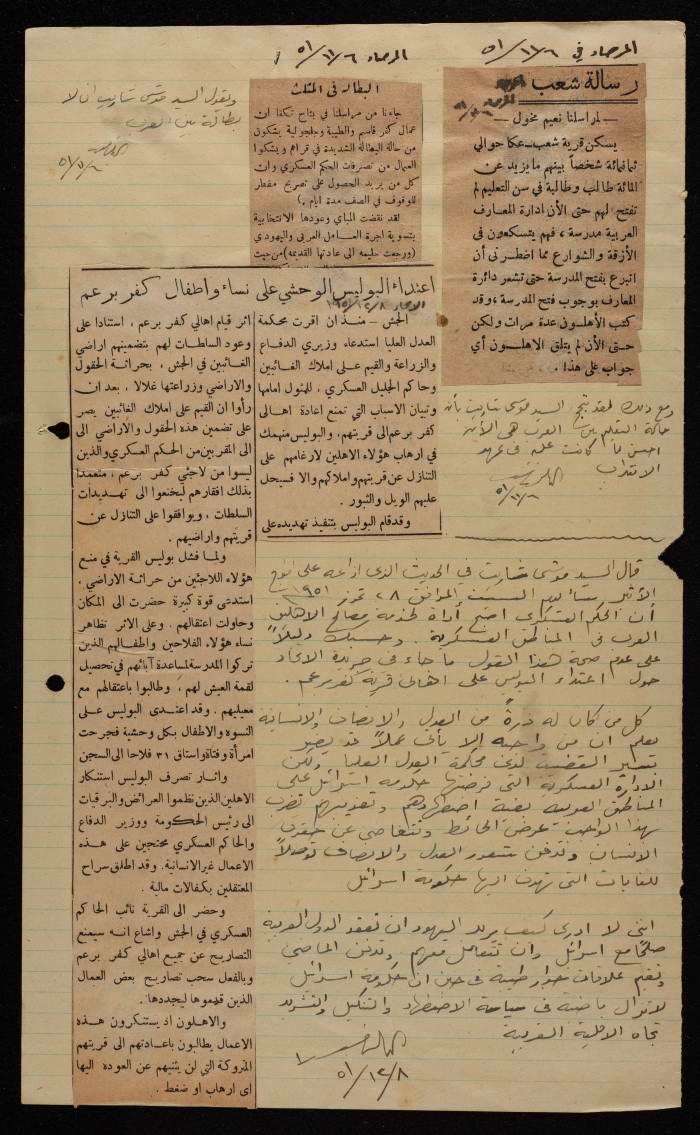 المرصاد في ٥١/١١/٦
رسالة شعب
ـ لمراسلنا نعيم مخول ـ
يسكن قرية شعب ـ عكا حوالي
ثمانمائة شخصاً بينهم ما يزيد عن
المائة طالب وطالبة في سن التعليم لم
تفتح لهم حتى الأن ادارة المعارف
العربية مدرسة، فهم يتسكعون في
الأزقة والشوارع مما اضطرني أن
اتبرع بفتح المدرسة حتى تشعر دائرة
المعارف بوجوب فتح المدرسة، وقد
كتب الأهلون عدة مرات ولكن
حتى الأن لم يتلق الاهلون أي
جواب على هذا.
ومع ذلك لقد تبجح السيد موسى شاريت بأن
حالة التعليم بين العرب هي الأن
احسن مما كانت عليه في عهد
الانتداب
٥١/١١/٦
المرصاد ٥١/١١/٦
البطالة في المثلث
جاءنا من مراسلنا في بتاح تكفا ان
عمال كفر قاسم والطيبة وجلجولية يشكون
من حالة البطالة الشديدة في قراهم ويشكوا
العمال من تصرفات الحكم العسكري وان
كل من يريد الحصول على تصريح مضطر
للوقوف في الصف مدة ايام.)
لقد نقضت المباي وعودها الانتخابية
بتسوية اجرة العامل العربي واليهودي
(ورجعت حليمه الى عادتها القديمه) من حيث
ويقول السيد موسى شاريت ان لا
بطالة بين العرب
اعتداء البوليس الوحشي على نساء واطفال كفر برعم
الاتحاد ١٩٥١/١٢/٨
الجش ـ منذ ان اقرت محكمة
العدل العليا استدعاء وزيري الدفاع
والزراعة والقيم على املاك الغائبين
وحاكم الجليل العسكري، للمثول امامها
وتبيان الاسباب التي تمنع اعادة اهالى
كفر برعم الى قريتهم، والبوليس منهمك
في ارهاب هؤلاء الاهلين لارغامهم على
التنازل عن قريتهم واملاكهم والا فسيحل
عليهم الويل والثبور.
وقد قام البوليس بتنفيذ تهديده على
اثر قيام اهالي كفر برعم، استنادا على
وعود السلطات لهم بتضمينهم اراضي
الغائبين في الجش، بحراثة الحقول
والاراضي وزراعتها غلالا. بعد ان
رأوا ان القيم على املاك الغائبين يصر
على تضمين هذه الحقول والأراضي الى
الى المقربين من الحكم العسكري والذين
ليسوا من لاجئي كفر برعم، متعمداً
بذلك افقارهم ليخنعوا الى تهديدات
السلطات، ويوافقوا على التنازل عن
قريتهم واراضيهم.
ولما فشل بوليس القرية في منع
هؤلاء اللاجئين من حراثة الاراضي،
استدعى قوة كبيرة حضرت الى المكان
وحاولت اعتقالهم. وعلى الاثر تظاهر
نساء هؤلاء الفلاحين واطفالهم الذين
تركوا المدرسة لمساعدة آبائهم في تحصيل
لقمة العيش لهم، وطالبوا باعتقالهم مع
معيليهم. وقد اعتدى البوليس على
النسوه والاطفال بكل وحشية فجرحت
امرأة وفتاة واستاق ٣١ فلاحا الى السجن
واثار تصرف البوليس استنكار
الاهلين الذين نظموا العرائض والبرقيات
الى رئيس الحكومة ووزير الدفاع
والحاكم العسكري محتجين على هذه
الاعمال غير الانسانية. وقد اطلق سراح
المعتقلين بكفالات مالية.
وحضر الى القرية نائب الحاكم
العسكري في الجش واشاع انه سيمنع
التصاريح عن جميع اهالي كفر برعم
وبالفعل سحب تصاريح بعض العمال
الذين قدموها ليجددها.
والاهلون اذ يستنكرون هذه
الاعمال يطالبون باعادتهم الى قريتهم
المتروكة التي لن يثنيهم عن العوده اليها
اى ارهاب او ضغط.
قال السيد موسى شاريت في الحديث الذي اذاعه على
الأثير مساء يوم السبت الموافق ٢٨ تموز ١٩٥١
أن الحكم العسكرى اصبح أداة لخدمة مصالح الاهلين
العرب في المناطق العسكرية. وحسبك دليلاً
على عدم صحة هذا القول ما جاء في جريدة الاتحاد
حول اعتداء البوليس على اهالي قرية كفر برعم.
كل من كان له ذرة من العدل والانصاف والانسانية
يعلم ان من واجبه الا يأتي عملاً قد يضير
بسير القضية لدى محكمة العدل العليا ولكن
الادارة العسكرية التي فرضتها حكومة اسرائيل على
المناطق العربية بغية اضطهادهم وتعذيبهم تضرب
بهذا الواجب عرض الحائط وتتغاضى عن حقوق
الانسان وتدفن شعور العدل والانصاف توصلاً
للغايات التي تهدف اليها حكومة اسرائيل
انني لا ادرى كيف يريد اليهود ان تعقد الدول العربية
صلحاً مع اسرائيل وان تتعامل معهم وتدفن الماضي
وتقيم علاقات جوار طيبة في حين ان حكومة اسرائيل
لا تزال ماضية في سياسة الاضطهاد والتنكيل والتشريد
تجاه الاقلية العربية
٥١/١٢/٨